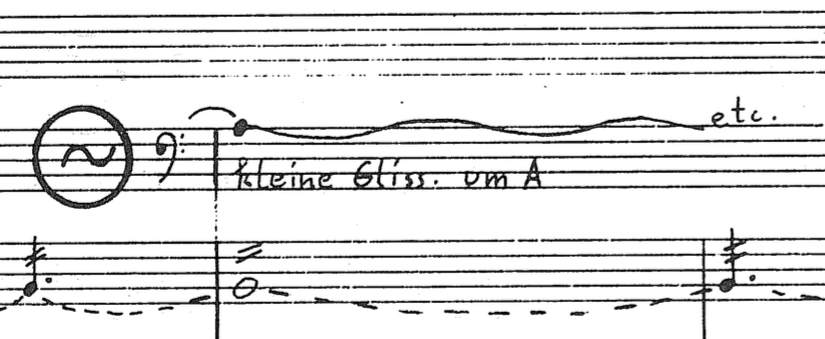 etc.
kleine Gliss. um A